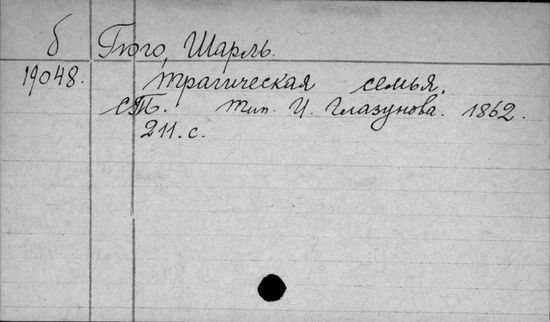 б Гюго, Шарль.
19048. Трагическая семья.
СПб. Тип. И. Глазунова. 1862.
211. с.